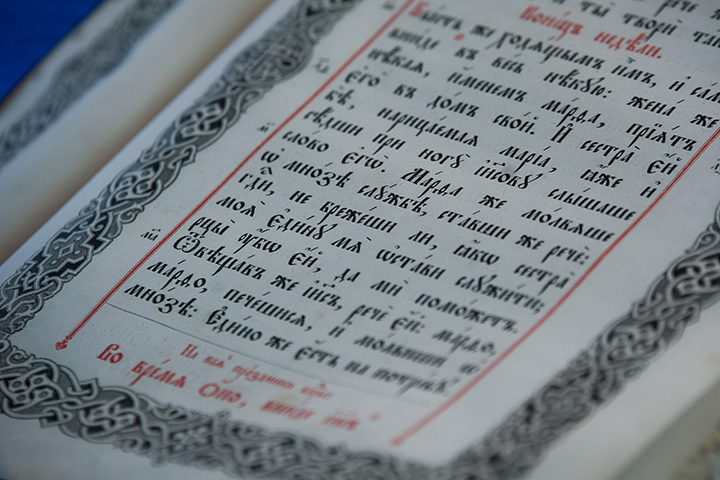 и ты твори та
Конецъ недѣли.
Бы́сть же ходѧ́щымъ и҆̀мъ, и҆ са́мъ
вни́де въ ве́сь нѣ́кꙋю: жена́ же
нѣ́каѧ, и҆́менемъ ма́рѳа, прїѧ́тъ
є҆го̀ въ до́мъ сво́й. И҆ сестра̀ є҆́й
бѣ̀, нарица́емаѧ марі́а, ꙗ҆́же и҆
сѣ́дши при ногꙋ̀ і҆и҃сѡвꙋ слы́шаше
сло́во є҆гѡ̀. Ма́рѳа же мо́лвѧше
ѡ҆ мно́зѣ слꙋ́жбѣ, ста́вши же речѐ:
гдⷭ҇и, не бреже́ши ли, ꙗ҆́кѡ сестра̀
моѧ̀ є҆ди́нꙋ мѧ̀ ѡ҆ста́ви слꙋжи́ти;
рцы̀ ᲂу҆̀бѡ є҆́й, да мѝ помо́жетъ.
Ѿвѣща́въ же і҆и҃съ, речѐ є҆́й: ма́рѳо,
ма́рѳо, пече́шисѧ, и҆ мо́лвиши ѡ҆
мно́зѣ: Є҆ди́но же є҆́сть на потре́бꙋ
На всѧ̑ пра́здники
Во вре́мѧ Оно, вни́де і҆и҃съ